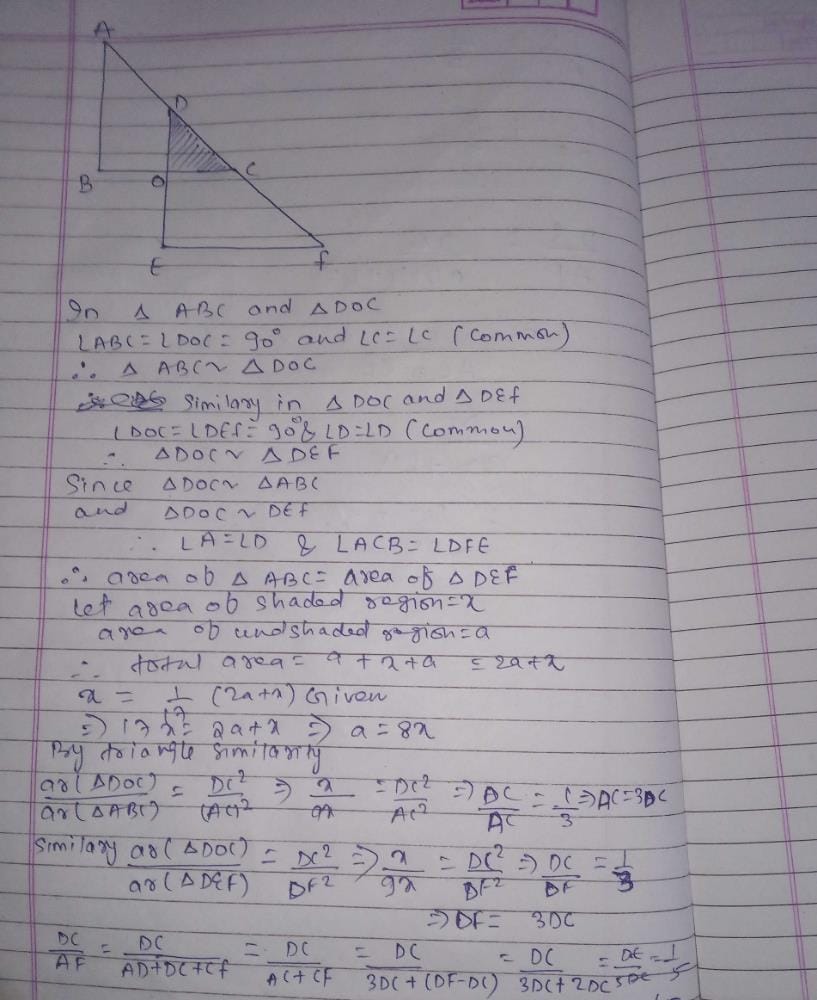 A
D
B
O
C
E
F
In △ ABC and △DOC
∠ABC = ∠DOC = 90° and ∠C = ∠C (Common)
∴ △ ABC ~ △DOC
Similary in △DOC and △DEF
∠DOC = ∠DEF = 90° & ∠D = ∠D (Common)
∴ △DOC ~ △DEF
Since △DOC ~ △ABC
and △DOC ~ DEF
∴ ∠A = ∠D & ∠ACB = ∠DFE
∴ area of △ ABC = Area of △ DEF
Let area of shaded region = x
area of undshaded region = a
∴ total area = a + x + a = 2a + x
x = 1/17 (2a + x) Given
⇒ 17x = 2a + x ⇒ a = 8x
By triangle similarity
ar(△DOC)/ar(△ABC) = DC²/(AC)² ⇒ x/9x = DC²/AC² ⇒ DC/AC = 1/3 ⇒ AC = 3DC
Similary ar(△DOC)/ar(△DEF) = DC²/DF² ⇒ x/9x = DC²/DF² ⇒ DC/DF = 1/3
⇒ DF = 3DC
DC/AF = DC/AD+DC+CF = DC/AC+CF = DC/3DC+(DF-DC) = DC/3DC+2DC = DC/5DC = 1/5